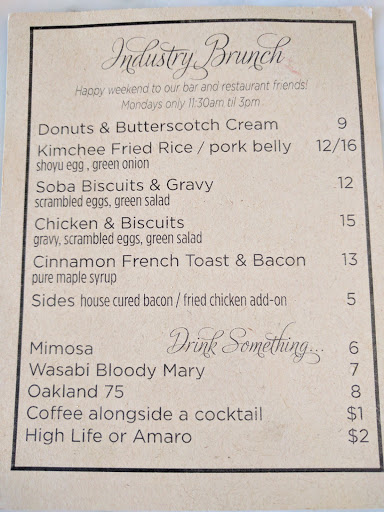 Industry Brunch
Happy weekend to our bar and restaurant friends!
Mondays only 11:30am til 3pm
Donuts & Butterscotch Cream 9
Kimchee Fried Rice / pork belly 12/16
shoyu egg , green onion
Soba Biscuits & Gravy 12
scrambled eggs, green salad
Chicken & Biscuits 15
gravy, scrambled eggs, green salad
Cinnamon French Toast & Bacon 13
pure maple syrup
Sides house cured bacon / fried chicken add-on 5
Drink Something...
Mimosa 6
Wasabi Bloody Mary 7
Oakland 75 8
Coffee alongside a cocktail $1
High Life or Amaro $2